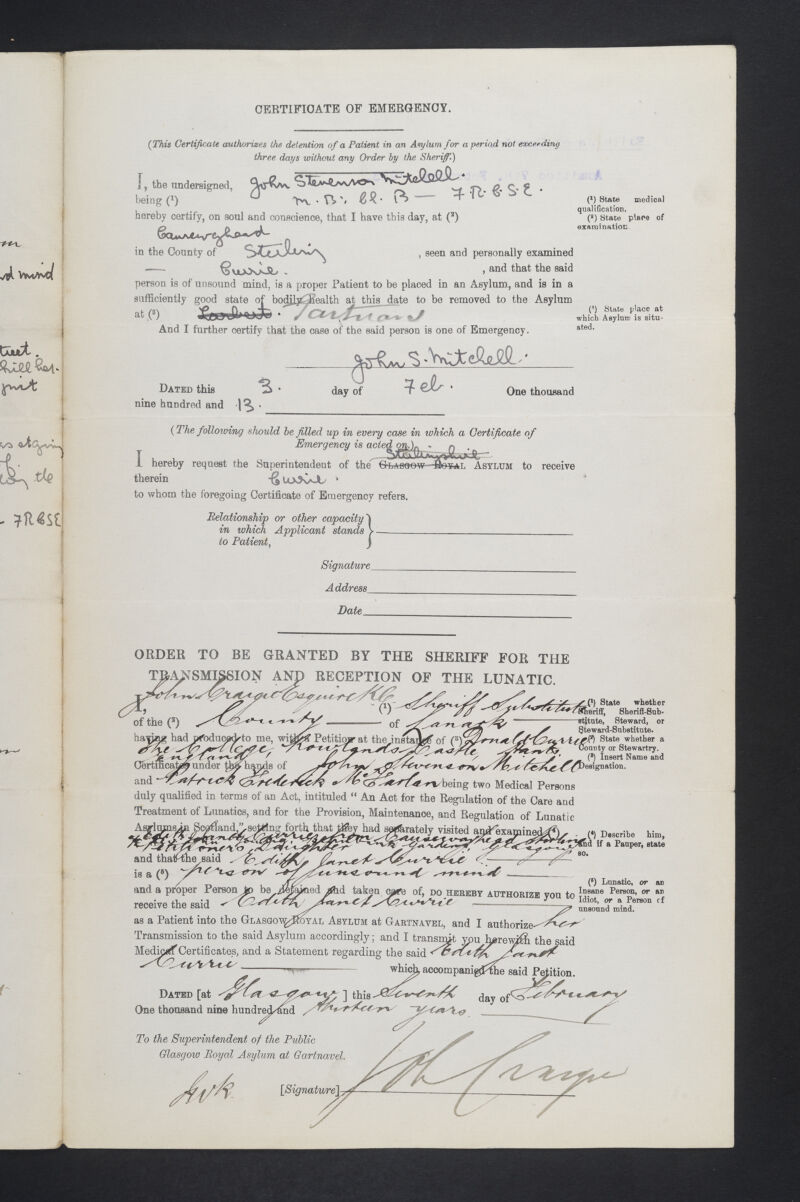 CERTIFICATE OF EMERGENCY.
(This Certificate authorizes the detention of a Patient in an Asylum for a period not exceeding
three days without any Order by the Sheriff.)
I, the undersigned, John Stevenson Mitchell.
being (¹) M.B., Ch. B — F.R.C.S.E.
(¹) State medical
qualification.
hereby certify, on soul and conscience, that I have this day, at (²)
(²) State place of
examination.
Causewayhead
in the County of Sterling , seen and personally examined
— Currie. , and that the said
person is of unsound mind, is a proper Patient to be placed in an Asylum, and is in a
sufficiently good state of bodily health at this date to be removed to the Asylum
at (³) Larbert. Gartnavel
(³) State place at
which Asylum is situ-
ated.
And I further certify that the case of the said person is one of Emergency.
John S. Mitchell.
DATED this 3. day of Feb. One thousand
nine hundred and 13.
(The following should be filled up in every case in which a Certificate of
Emergency is acted on.)
Stirlingshire
I hereby request the Superintendent of the GLASGOW ROYAL ASYLUM to receive
therein Currie.
to whom the foregoing Certificate of Emergency refers.
Relationship or other capacity
in which Applicant stands
to Patient,
Signature
Address
Date
ORDER TO BE GRANTED BY THE SHERIFF FOR THE
TRANSMISSION AND RECEPTION OF THE LUNATIC.
John Craigie Esquire K.C.
I, (¹) Sheriff Substitute
(¹) State whether
Sheriff, Sheriff-Sub-
stitute, Steward, or
Steward-Substitute.
of the (²) County — of Lanark
(²) State whether a
County or Stewartry.
having had produced to me, with a Petition at the instance of (³) Donald Currie
The College, Rowlands Castle, Hants
England
(³) Insert Name and
Designation.
Certificates under the hands of John Stevenson Mitchell
and Patrick Frederick McFarlan being two Medical Persons
duly qualified in terms of an Act, intituled "An Act for the Regulation of the Care and
Treatment of Lunatics, and for the Provision, Maintenance, and Regulation of Lunatic
Asylums in Scotland," setting forth that they had separately visited and examined (⁴)
Edith Janet Currie from Causewayhead Stirling
Gardens, Glasgow
Petitioner's Daughter
(⁴) Describe him,
and if a Pauper, state
so.
and that the said Edith Janet Currie
is a (⁵) person of unsound mind —
(⁵) Lunatic, or an
Insane Person, or an
Idiot, or a Person of
unsound mind.
and a proper Person to be detained and taken care of, DO HEREBY AUTHORIZE you to
receive the said Edith Janet Currie
as a Patient into the GLASGOW ROYAL ASYLUM AT GARTNAVEL, and I authorize her
Transmission to the said Asylum accordingly; and I transmit you herewith the said
Medical Certificates, and a Statement regarding the said Edith Janet
Currie — which accompanied the said Petition.
DATED [at Glasgow ] this Seventh day of February
One thousand nine hundred and thirteen years.
To the Superintendent of the Public
Glasgow Royal Asylum at Gartnavel.
[Signature] Joh Craigie
d mind
treet.
the
- FRCSE